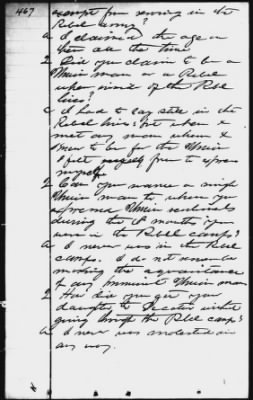 467
exempt from serving in the
Rebel army?
a I claimed the age on
them all the time
Q Did you claim to be a
Union man or a Rebel
when inside of the Rebel
lines?
a I had to say still in the
Rebel lines: but when I
met any man whom I
knew to be for the Union
I felt myself free to express
myself
Q Can you name a single
Union man to whom you
expressed Union sentiments
during the months you
were in the Rebel camps?
a I never was in the Rebel
camps. I do not remember
making the acquaintance
of any prominent Union man
Q How did you get your
daughter to Decatur without
going through the Rebel camps?
a I never was molested in
any way.